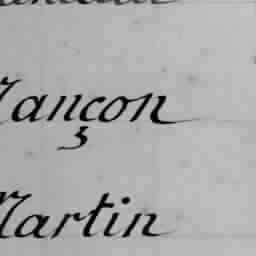 Mançon
Martin